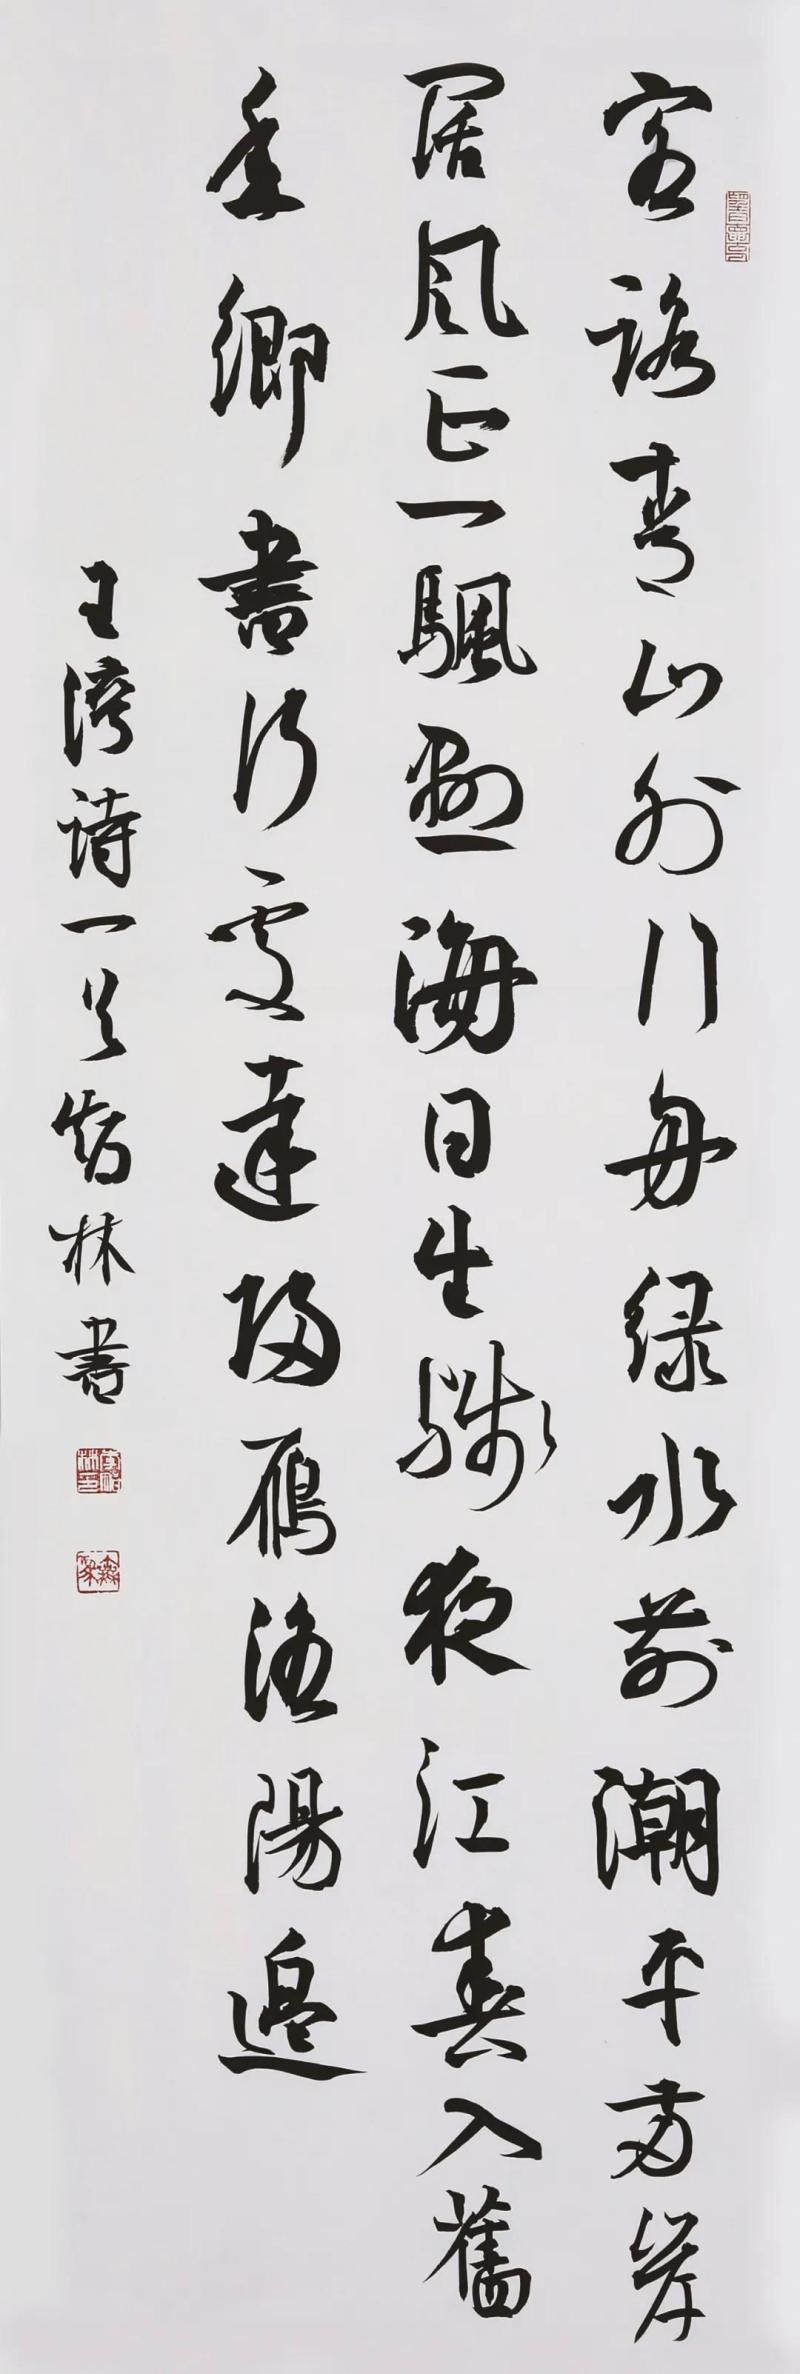 客路青山外行舟绿水前潮平两岸
阔风正一颿懸海日生殘夜江春入舊
年鄉書何處達歸雁洛陽邊
王湾诗一首 林書